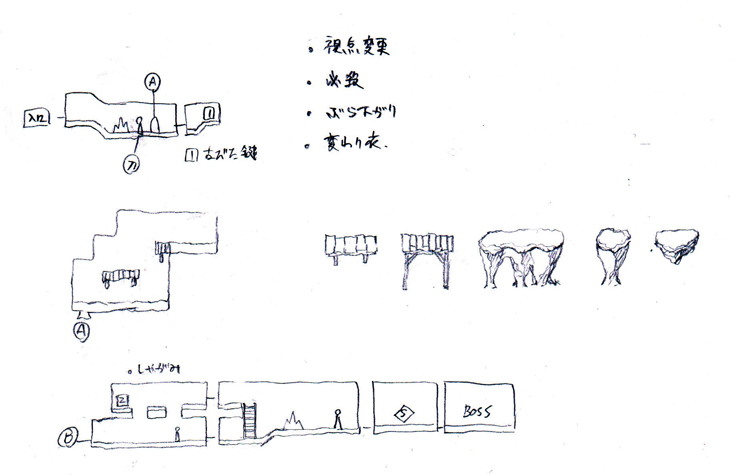 ・視点変更
・必殺
・ぶら下がり
・変わり衣.
A
入口
1
刀
1 古びた鍵
A
・しゃがみ
2
B
S
BOSS